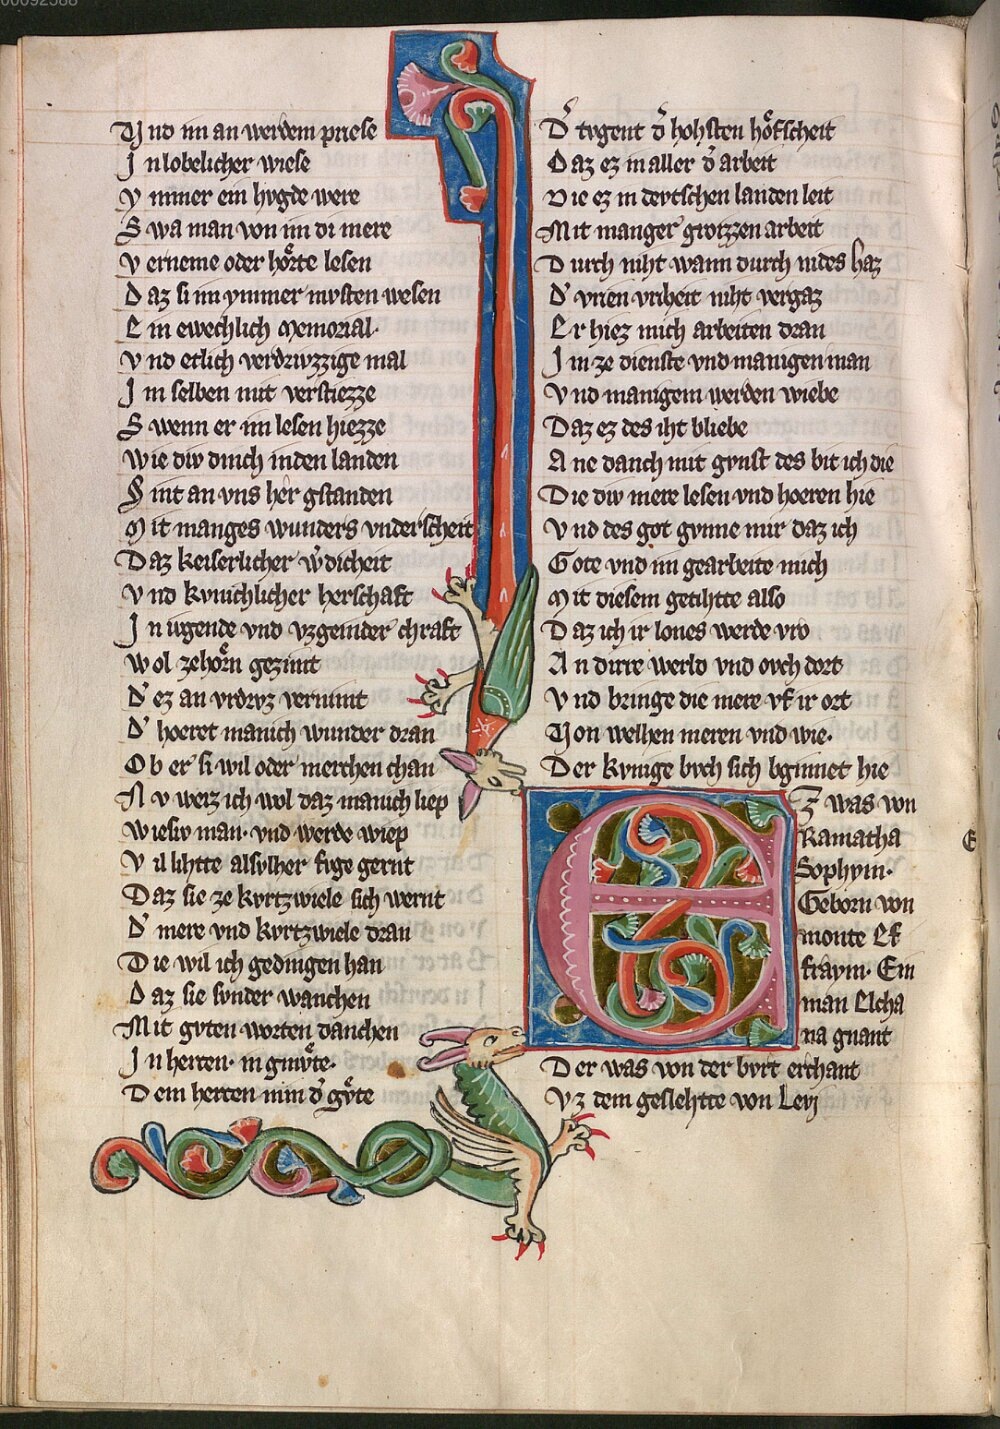 00092588
Vnd im an werdem priese
In lobelicher wiese
Vmmer ein hvgde were
Swa man von im di mere
Verneme oder hoͤrte lesen
Daz si im ymmer mvsten wesen
Ein ewechlich Memorial·
Vnd etlich verdrvzzige mal
Im selben mit verstiezze
Swenn er im lesen hiezze
Wie div dinch in den landen
Sint an vns her gstanden
Mit manges wunders vnderscheit
Daz keiserlicher w̓dicheit
Vnd kvnichlicher herschaft
In tigende vnd vzgeinder chraft
Wol zehoͤrn gezimt
D̓ ez an vrdrvz vernimt
D̓ hoeret manich wunder dran
Ob er si wil oder merchen chan
Nv weiz ich wol daz manich liep
Wie siv man· vnd werde wiep
Vil lihtte alsolher fige gernt
Daz sie ze kvrtzwiele sich wernt
D̓ mere vnd kvrtzwiele dran
Die wil ich gedingen han
Daz sie svnder wanchen
Mit gvten worten danchen
In herten· in gmvͤte·
Dem herten min d̓ gvͤte
D̓ tvgent d̓ hohsten hoͤfscheit
Daz ez in aller d̓ arbeit
Die ez in devtschen landen leit
Mit manger grozzen arbeit
Durch niht wann durch nides haz
D̓ vrien vriheit niht vergaz
Er hiez mich arbeiten dran
Im ze dienste vnd manigen man
Vnd manigem werden wiebe
Daz ez des iht bliebe
Ane danch mit gvnst des bit ich die
Die div mere lesen vnd hoeren hie
Vnd des got gvnne mir daz ich
Gote vnd im gearbeite mich
Mit diesem getihtte also
Daz ich ir lones werde vro
An dirre werld vnd ovch dort
Vnd bringe die mere vf ir ort
Von welhen meren vnd wie·
Der kvnige bvch sich bginnet hie
Ez was von
Ramatha
Sophym·
Geborn von
monte Ef
fraym· Ein
man Elcha
na gnant
Der was von der bvrt erchant
Vz dem geslehtte von Levi